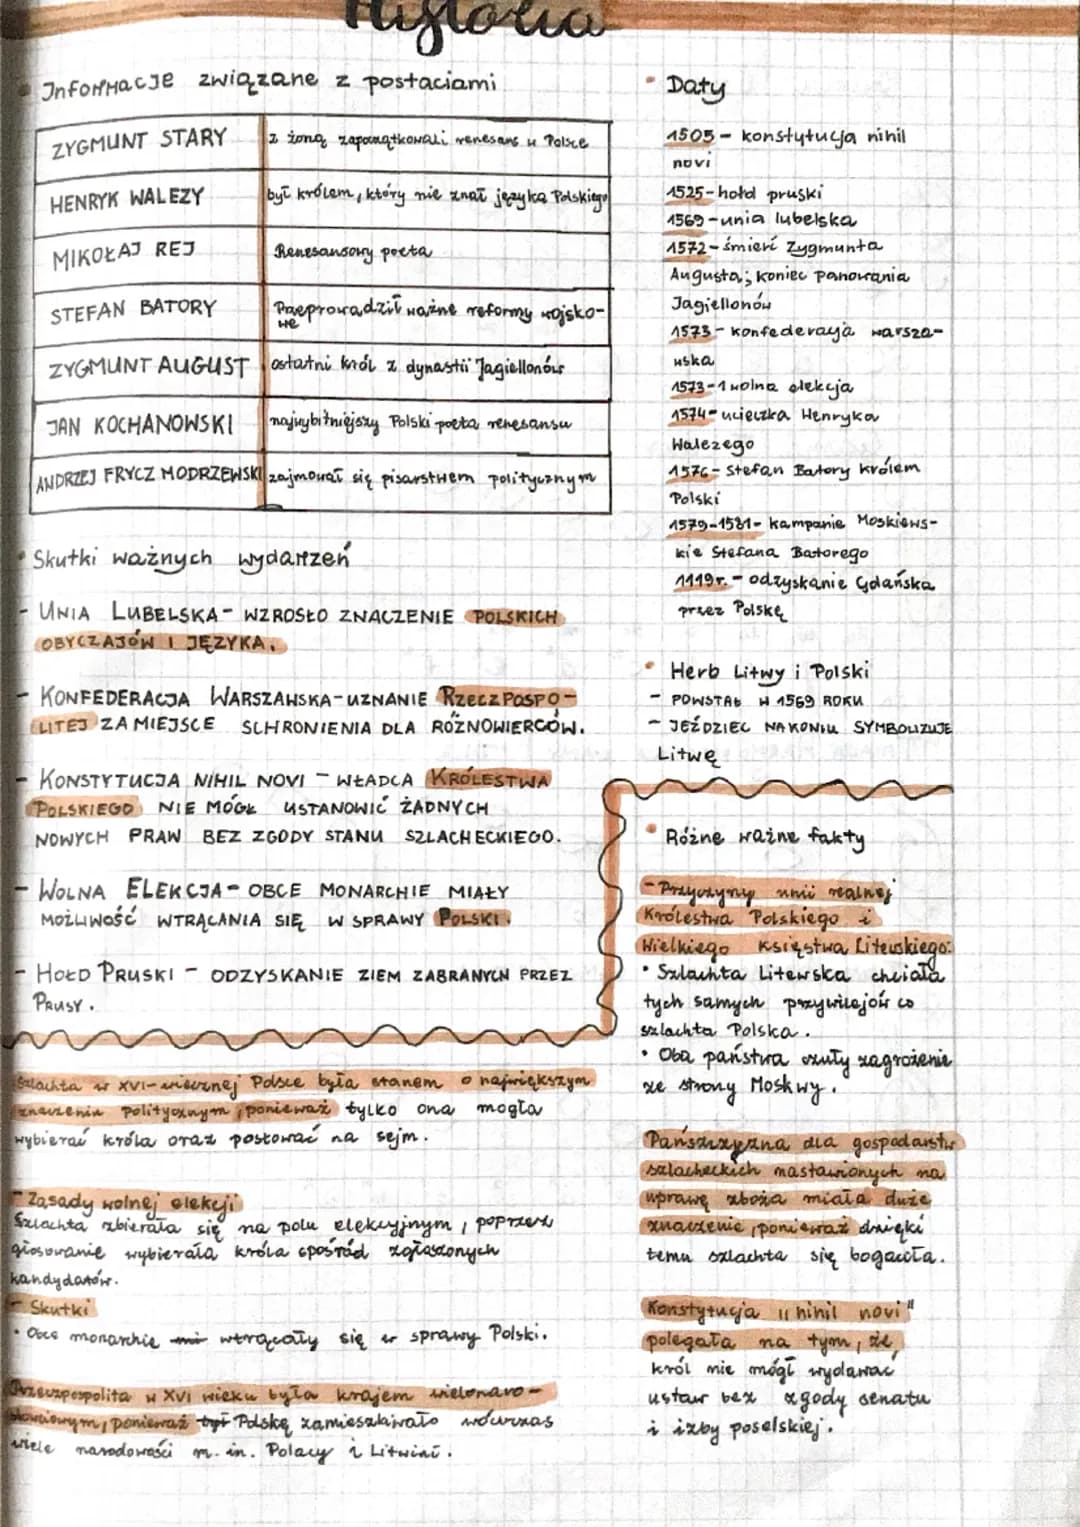 Historia
• Informacje związane z postaciami
ZYGMUNT STARY
z żoną zapoczątkowali renesans w Polsce
HENRYK WALEZY
był królem, który nie znał języka Polskiego
MIKOŁAJ REJ
Renesansowy poeta
STEFAN BATORY
Przeprowadził ważne reformy wojsko-
we
ZYGMUNT AUGUST
ostatni król z dynastii Jagiellonów
JAN KOCHANOWSKI
najwybitniejszy Polski poeta renesansu
ANDRZEJ FRYCZ MODRZEWSKI
zajmował się pisarstwem politycznym
• Skutki ważnych wydarzeń
- UNIA LUBELSKA - WZROSŁO ZNACZENIE POLSKICH
OBYCZAJÓW I JĘZYKA.
- KONFEDERACJA WARSZAWSKA - UZNANIE RZECZPOSPO-
LITEJ ZA MIEJSCE SCHRONIENIA DLA RÓŻNOWIERCÓW.
- KONSTYTUCJA NIHIL NOVI - WŁADCA KRÓLESTWA
POLSKIEGO NIE MÓGŁ USTANOWIĆ ŻADNYCH
NOWYCH PRAW BEZ ZGODY STANU SZLACHECKIEGO.
- WOLNA ELEKCJA - OBCE MONARCHIE MIAŁY
MOŻLIWOŚĆ WTRĄCANIA SIĘ W SPRAWY POLSKI.
- HOŁD PRUSKI - ODZYSKANIE ZIEM ZABRANYCH PRZEZ
PRUSY.
Szlachta w XVI-wiecznej Polsce była stanem o największym
znaczeniu politycznym, ponieważ tylko ona mogła
wybierać króla oraz posłować na sejm.
- Zasady wolnej elekcji
Szlachta zbierała się na polu elekcyjnym, poprzez
głosowanie wybierała króla spośród zgłaszonych
kandydatów.
- Skutki
• Obce monarchie wtrącały się w sprawy Polski.
Rzeczpospolita w XVI wieku była krajem wielonaro-
dowościowym, ponieważ Polskę zamieszkiwało wówczas
wiele narodowości m. in. Polacy i Litwini.
• Daty
1505 - konstytucja nihil
novi
1525 - hołd pruski
1569 - unia lubelska
1572 - śmierć Zygmunta
Augusta; koniec panowania
Jagiellonów
1573 - konfederacja warsza-
wska
1573 - 1 wolna elekcja
1574 - ucieczka Henryka
Walezego
1576 - Stefan Batory królem
Polski
1579-1581 - kampanie Moskiews-
kie Stefana Batorego
1119r. - odzyskanie Gdańska
przez Polskę
• Herb Litwy i Polski
- POWSTAŁ W 1569 ROKU
- JEŹDZIEC NA KONIU SYMBOLIZUJE
LITWĘ
• Różne ważne fakty
- Przyczyny unii realnej
Królestwa Polskiego i
Wielkiego Księstwa Litewskiego:
• Szlachta Litewska chciała
tych samych przywilejów co
szlachta Polska.
• Oba państwa czuły zagrożenie
ze strony Moskwy.
Pańszczyzna dla gospodarstw
szlacheckich nastawionych na
uprawę zboża miała duże
znaczenie, ponieważ dzięki
temu szlachta się bogaciła.
Konstytucja "nihil novi"
polegała na tym, że
król nie mógł wydawać
ustaw bez zgody senatu
i izby poselskiej.